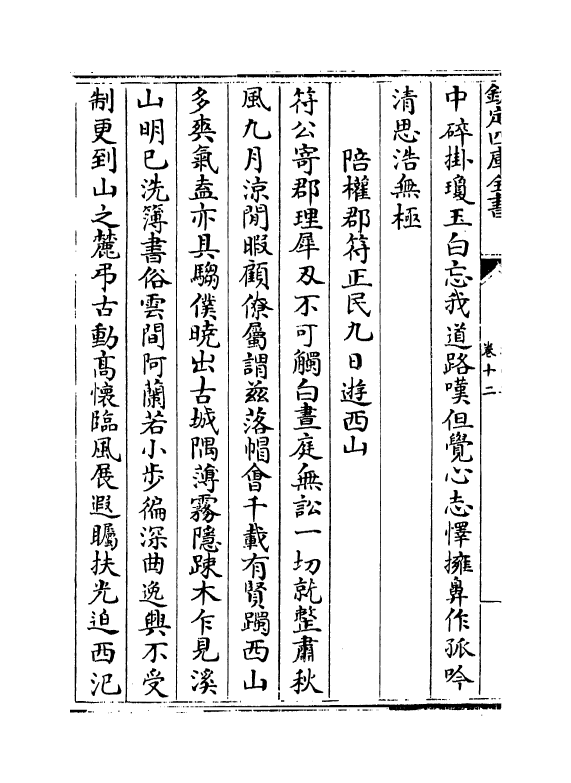 欽定四庫全書
卷十二
中碎掛瓊玉白忘我道路嘆但覺心志懌擁鼻作孤吟
清思浩無極
陪權郡符正民九日遊西山
符公寄郡理犀刄不可觸白晝庭無訟一切就整肅秋
風九月涼閒暇顧僚屬謂兹落帽會千載有賢躅西山
多爽氣盍亦具騶僕曉出古城隅薄霧隱踈木乍見溪
山明已洗簿書俗雲間阿蘭若小步徧深曲逸興不受
制更到山之麓弔古動高懷臨風展遐矚扶光迫西汜